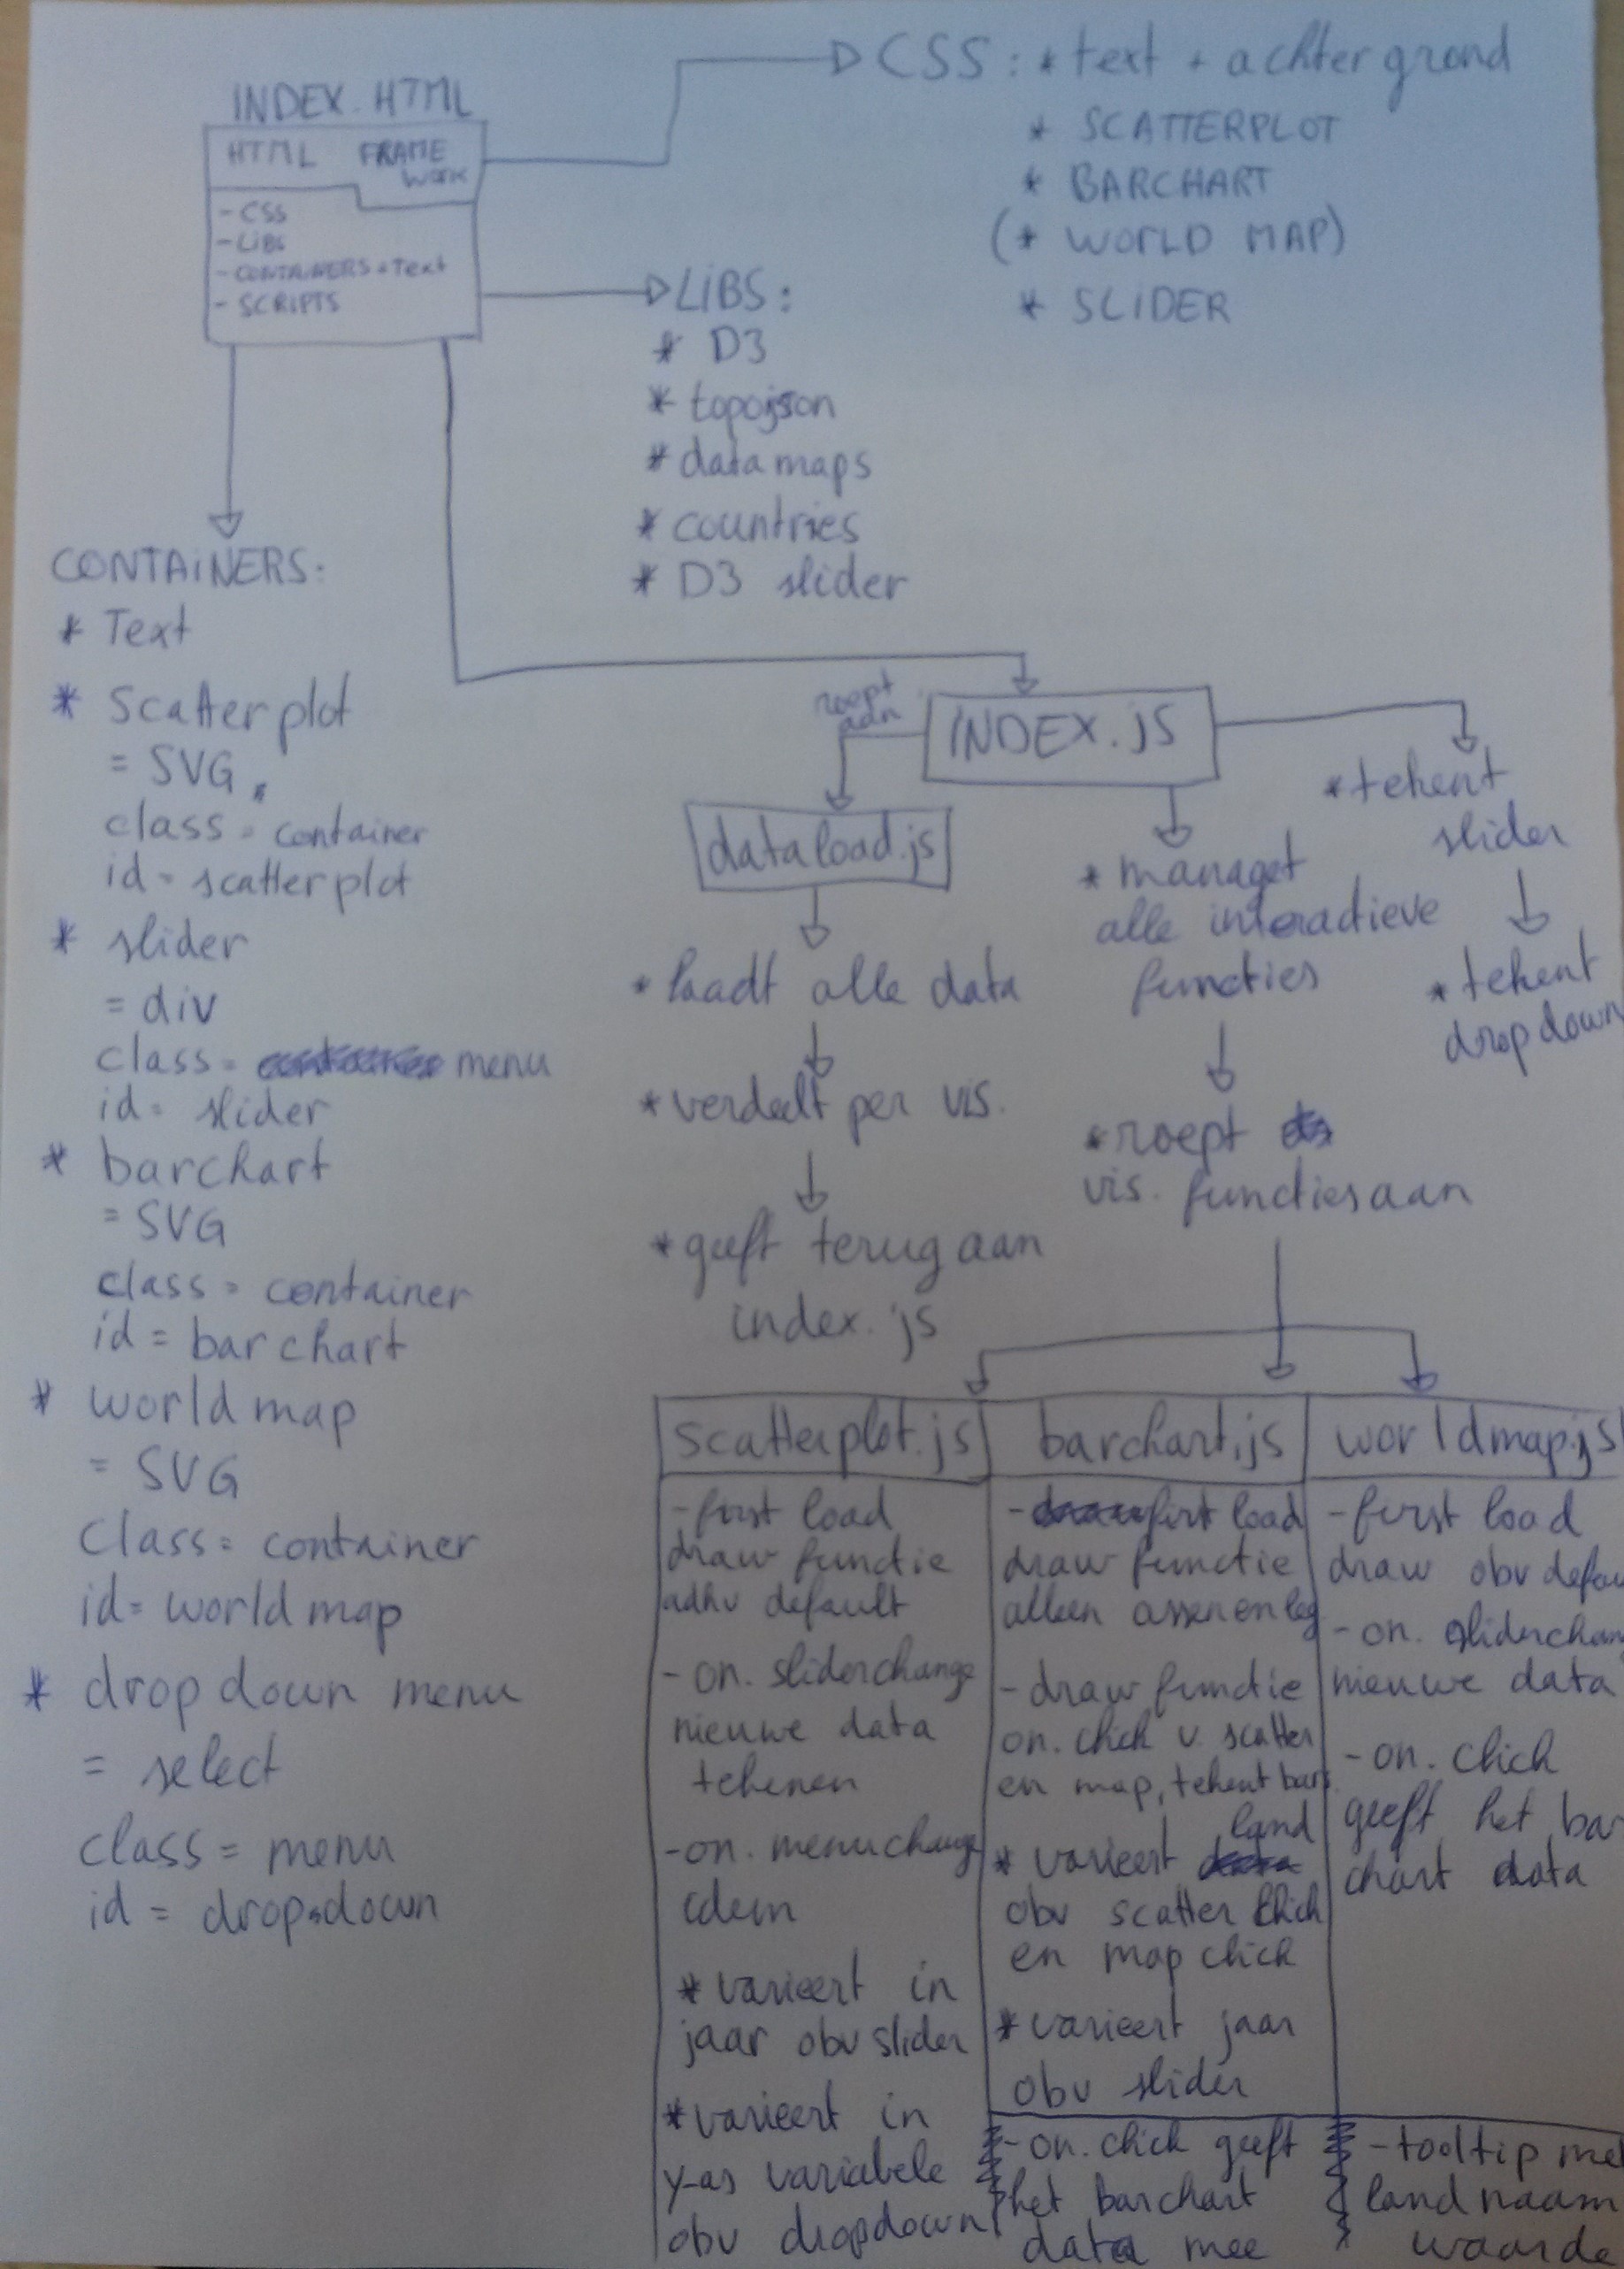 INDEX.HTML
HTML FRAME
WORK
- CSS
- LIBS
- CONTAINERS + Text
- SCRIPTS
CSS: * text + achtergrond
* SCATTERPLOT
* BARCHART
(* WORLD MAP)
* SLIDER
LIBS:
* D3
* topojson
* datamaps
* countries
* D3 slider
CONTAINERS:
* Text
* Scatterplot
= SVG
class = container
id = scatterplot
* slider
= div
class = menu
id = slider
* barchart
= SVG
class = container
id = barchart
* worldmap
= SVG
class = container
id = worldmap
* dropdown menu
= select
class = menu
id = dropdown
INDEX.js
roept
aan
dataload.js
* laadt alle data
* verdeelt per vis.
* geeft terug aan
index.js
* managet
alle interactieve
functies
* roept
vis. functies aan
* tekent
slider
* tekent
dropdown
scatterplot.js
- first load
draw functie
adhv default
- on. sliderchange
nieuwe data
tekenen
- on. menuchange
idem
* varieert in
jaar obv slider
* varieert in
y-as variabele
obv dropdown
- on. click geeft
het barchart
data mee
- tooltip me
landnaam
waarde
barchart.js
- first load
draw functie
alleen assen en leg
- draw functie
on. click v. scatter
en map, tekent bars
* varieert land
obv scatter click
en map click
* varieert jaar
obv slider
worldmap.js
- first load
draw obv defau
- on. sliderchan
nieuwe data
- on. click
geeft het bar
chart data